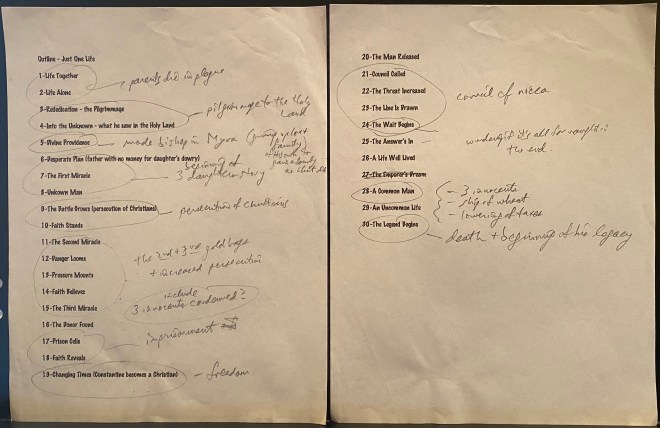 Outline - Just One Life
1-Life Together
parents die in plague
2-Life Alone
3-Rededication - the Pilgrimmage
pilgrimage to the Holy Land
4-Into the Unknown - what he saw in the Holy Land
5-Divine Providence
made bishop in Myra
6-Desperate Plan (father with no money for daughter's dowry)
beginning of
3 daughters story
7-The First Miracle
8-Unkown Man
9-The Battle Grows (persecution of Christians)
persecution of Christians
10-Faith Stands
11-The Second Miracle
the 2nd + 3rd gold bags
+ increased persecution
12-Danger Looms
13-Pressure Mounts
14-Faith Believes
include
3 innocents condemned?
15-The Third Miracle
16-The Donor Found
17-Prison Cells
imprisonment
18-Faith Reveals
19-Changing Times (Constantine becomes a Christian)
- freedom
20-The Man Released
21-Council Called
22-The Threat Increased
council of nicea
23-The Line Is Drawn
24-The Wait Begins
25-The Answer's In
wondering if it's all for naught -
the end.
26-A Life Well Lived
27-The Emperor's Dream
28-A Common Man
- 3 innocents
- ship of wheat
- lowering of taxes
29-An Uncommon Life
30-The Legend Begins
death + beginning of his legacy